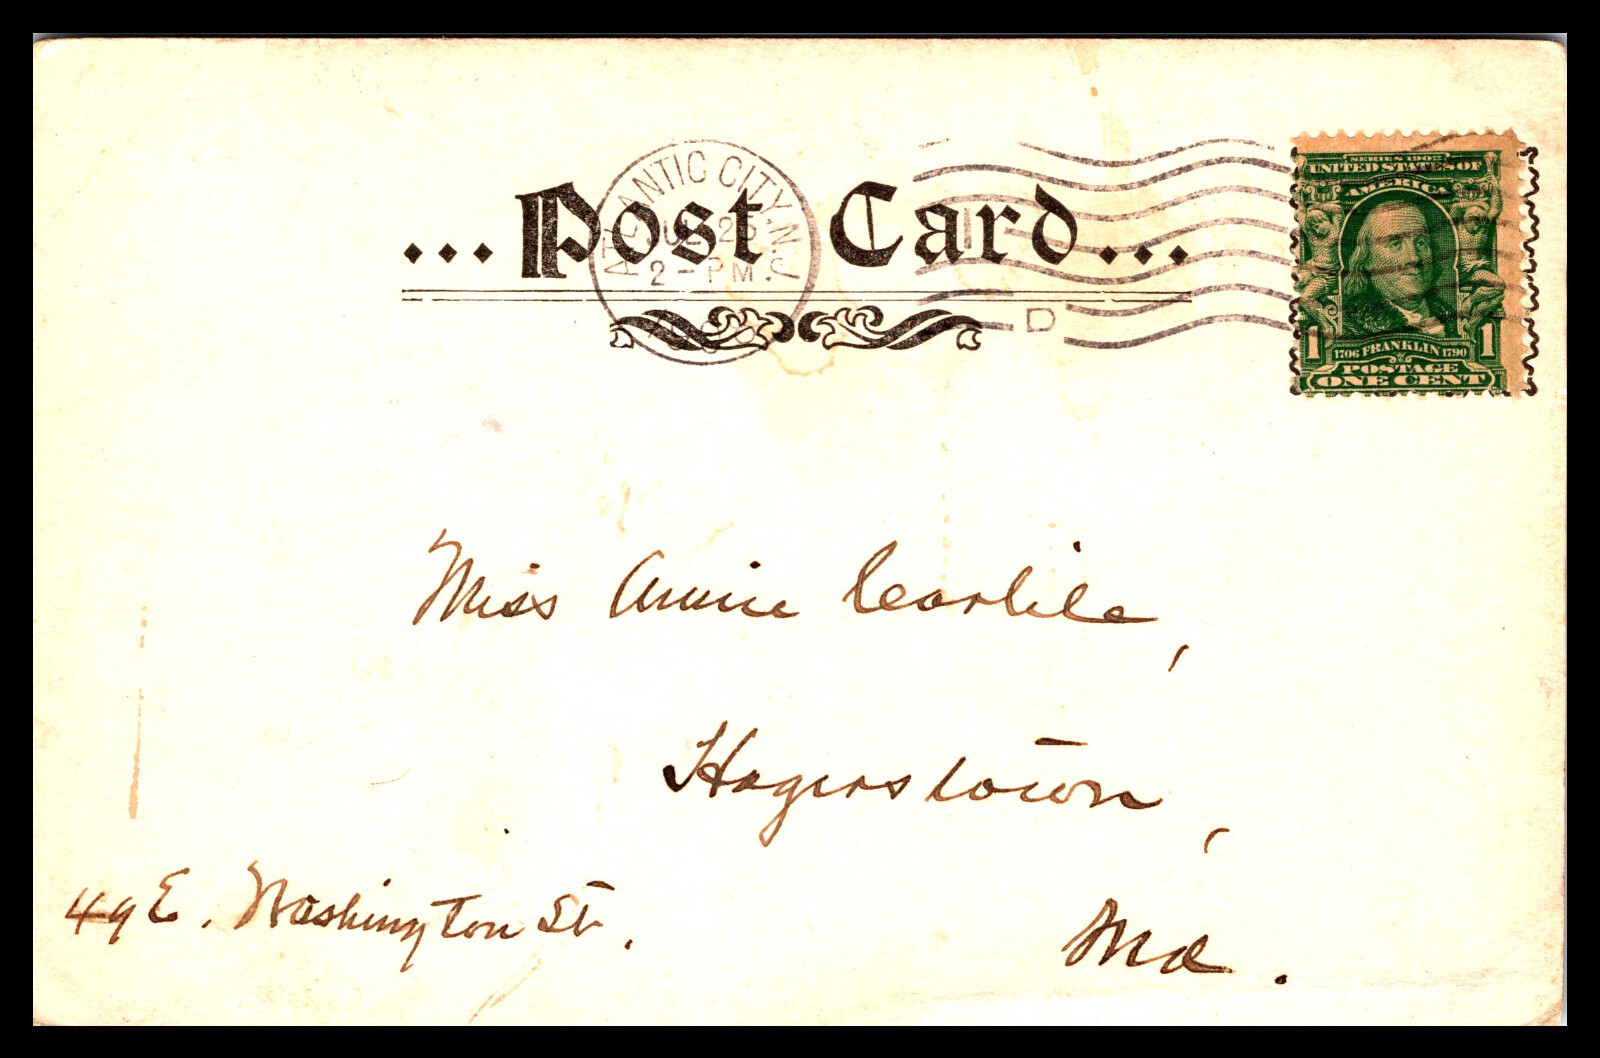 ...Post Card...
ATLANTIC CITY, N.J.
2 - PM
D
SERIES 1902
UNITED STATES OF
AMERICA
1 1706 FRANKLIN 1790 1
POSTAGE
ONE CENT
Miss Annie Carlile,
Hagerstown,
49 E. Washington St.
Md.